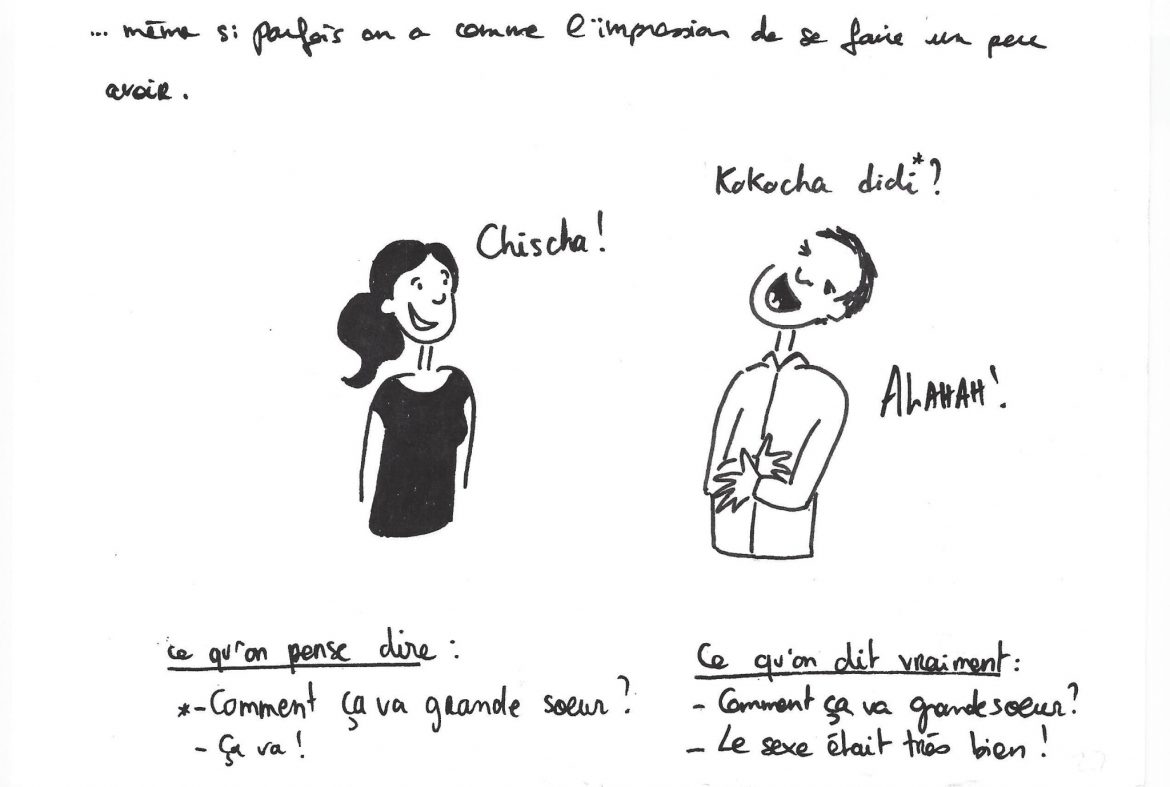 ... même si parfois on a comme l'impression de se faire un peu
avoir.
Kokocha didi*?
Chischa!
AHAHAH!
ce qu'on pense dire :
*-Comment ça va grande soeur?
- Ça va !
Ce qu'on dit vraiment:
- Comment ça va grande soeur?
- Le sexe était très bien !
27